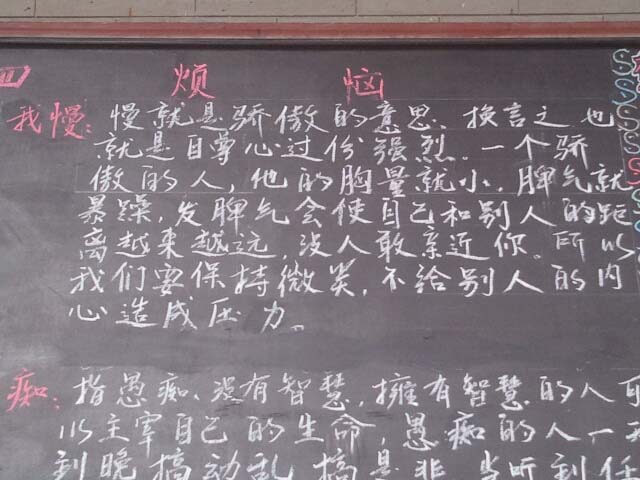 烦 恼
我慢：慢就是骄傲的意思，换言之，也
就是自尊心过份强烈。一个骄
傲的人，他的胸量就小，脾气就
暴躁，发脾气会使自己和别人的距
离越来越远，没人敢亲近你。所以
我们要保持微笑，不给别人的内
心造成压力。
痴：指愚痴，没有智慧，拥有智慧的人可
以主宰自己的生命，愚痴的人一天
到晚搞动乱，搞是非，当听到任